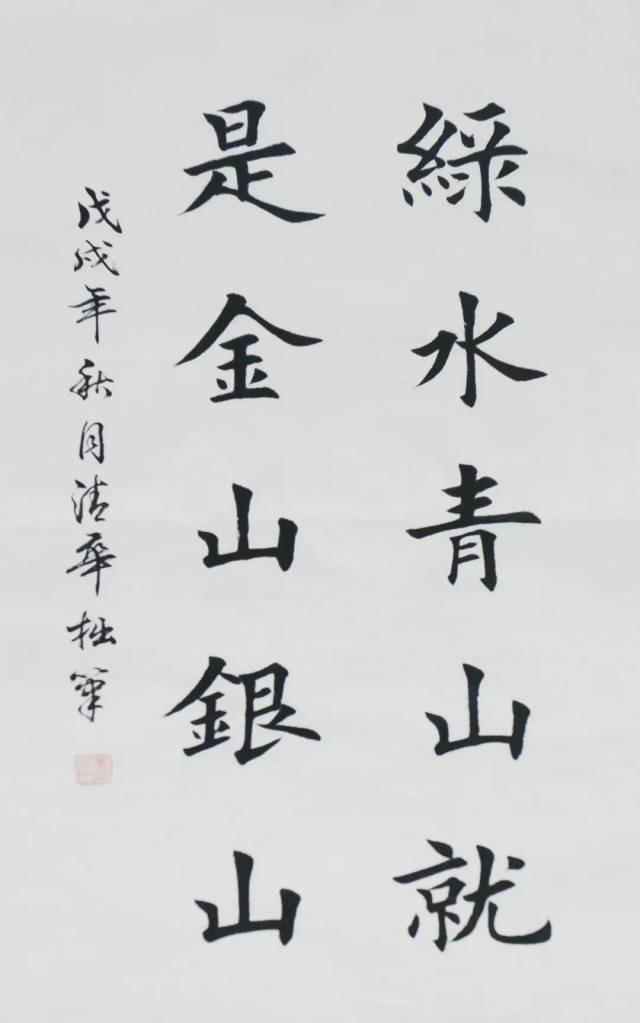 綠水青山就
是金山銀山
戊戌年秋月清華拙筆